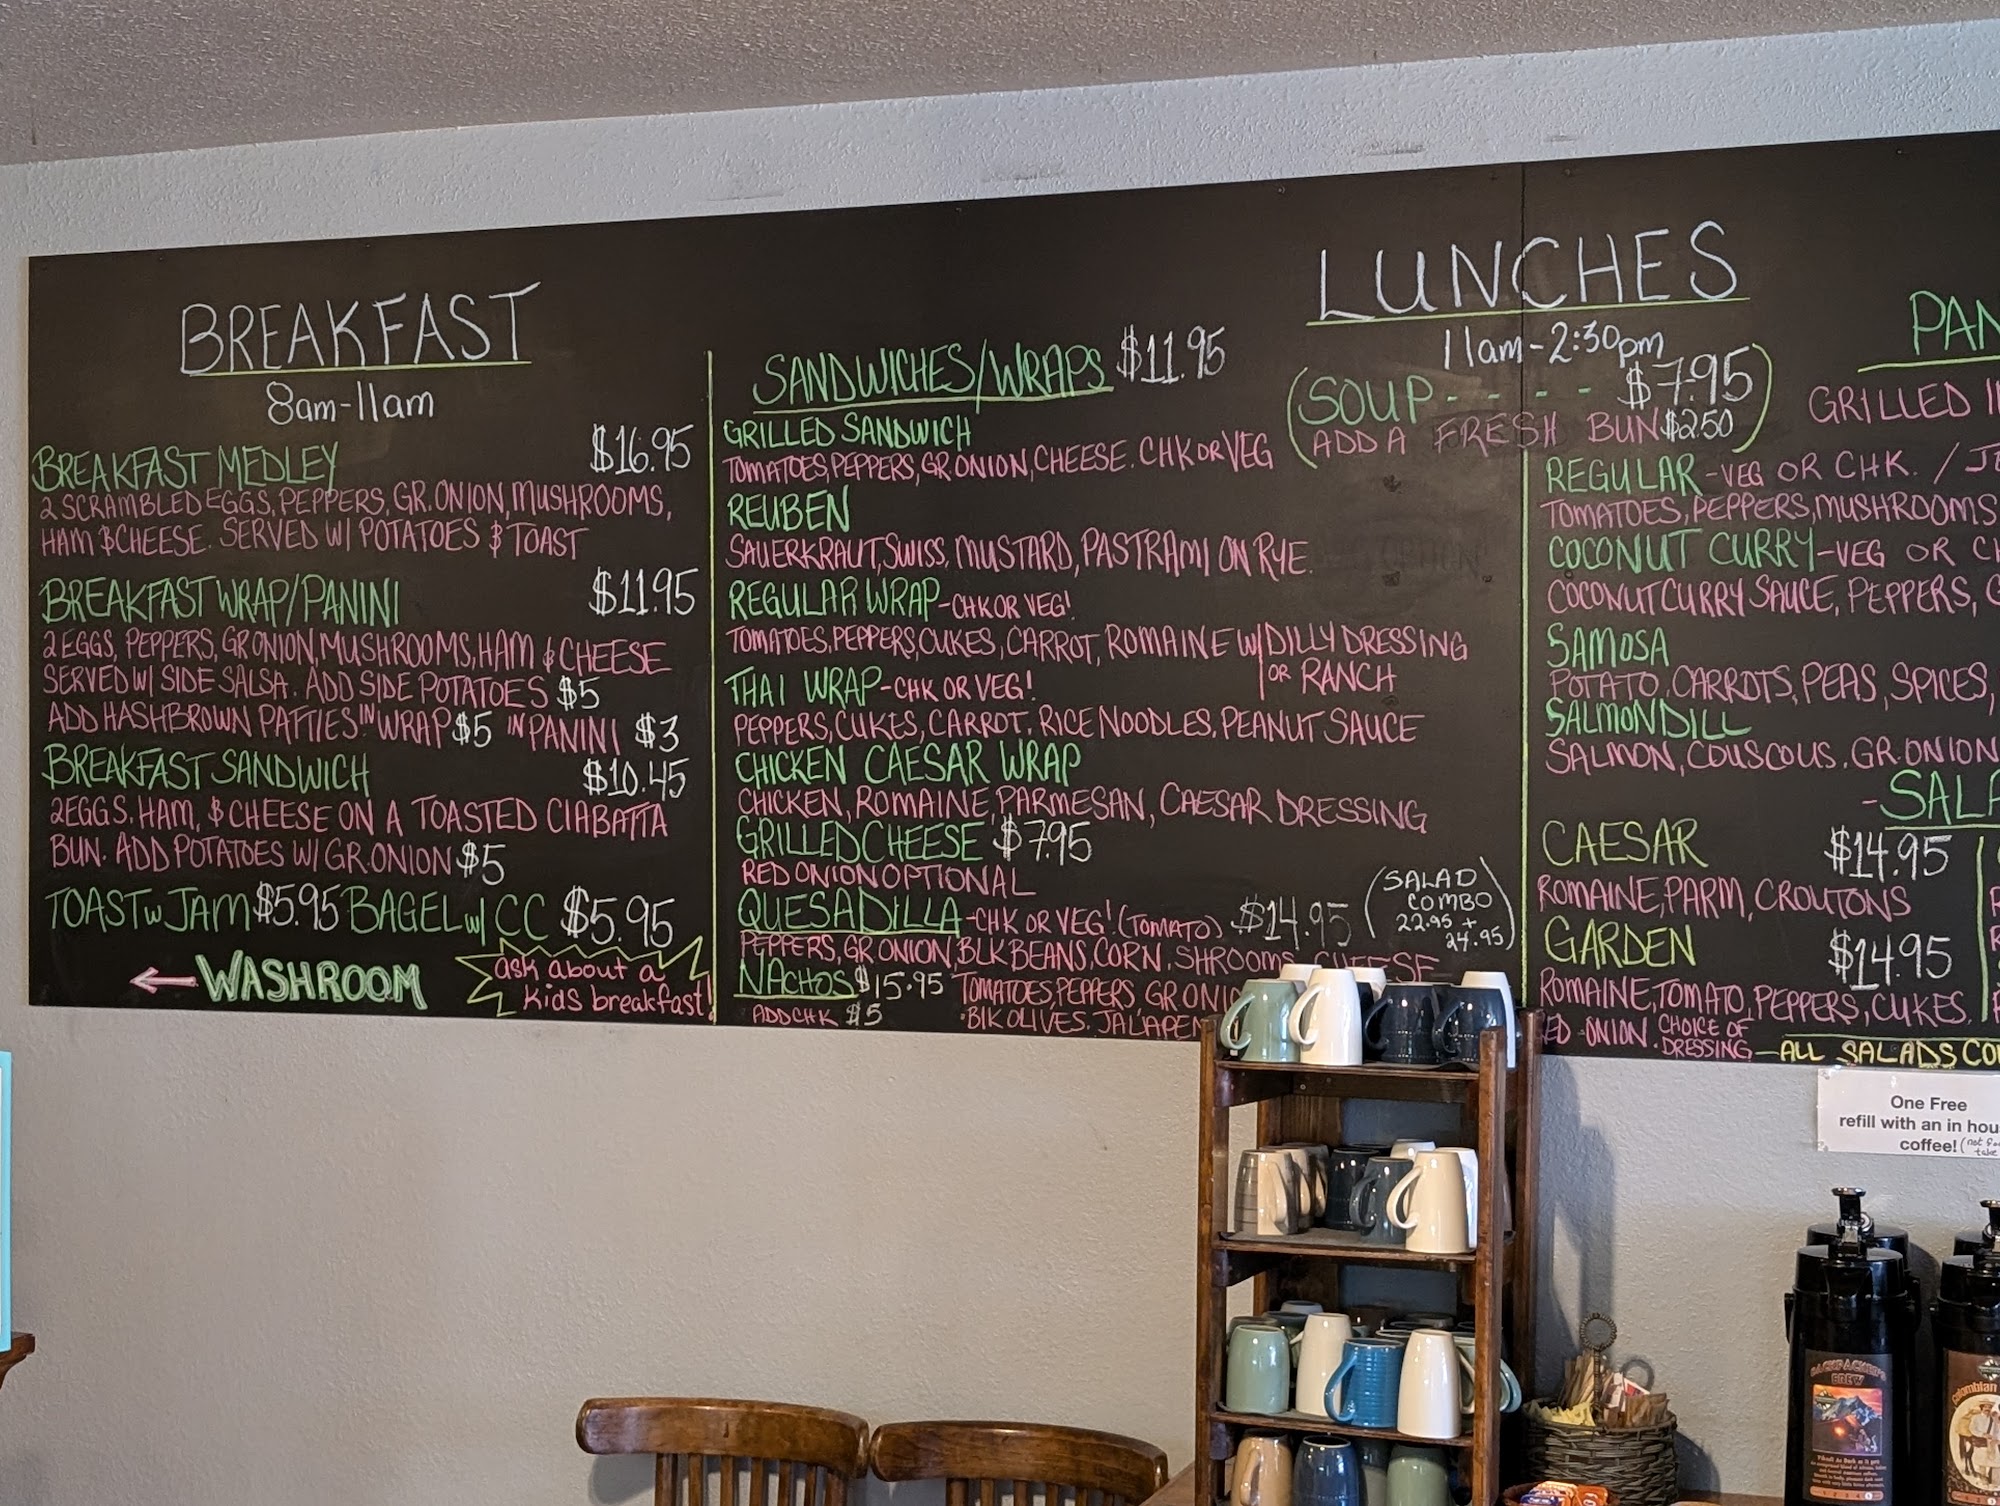 BREAKFAST
8am-11am
BREAKFAST MEDLEY $16.95
2 SCRAMBLED EGGS, PEPPERS, GR.ONION, MUSHROOMS,
HAM & CHEESE. SERVED W/ POTATOES & TOAST
BREAKFAST WRAP/PANINI $11.95
2 EGGS, PEPPERS, GR ONION, MUSHROOMS, HAM & CHEESE
SERVED W/ SIDE SALSA. ADD SIDE POTATOES $5
ADD HASHBROWN PATTIES IN WRAP $5 IN PANINI $3
BREAKFAST SANDWICH $10.45
2 EGGS, HAM, & CHEESE ON A TOASTED CIABATTA
BUN. ADD POTATOES W/ GR.ONION $5
TOAST w JAM $5.95 BAGEL w/ CC $5.95
← WASHROOM
ask about a
kids breakfast!
LUNCHES
11am-2:30pm
SANDWICHES/WRAPS $11.95
GRILLED SANDWICH
TOMATOES, PEPPERS, GR.ONION, CHEESE. CHK OR VEG
REUBEN
SAUERKRAUT, SWISS, MUSTARD, PASTRAMI ON RYE.
REGULAR WRAP-CHK OR VEG!
TOMATOES, PEPPERS, CUKES, CARROT, ROMAINE W/ DILLY DRESSING
OR RANCH
THAI WRAP-CHK OR VEG!
PEPPERS, CUKES, CARROT, RICE NOODLES, PEANUT SAUCE
CHICKEN CAESAR WRAP
CHICKEN, ROMAINE, PARMESAN, CAESAR DRESSING
GRILLED CHEESE $7.95
RED ONION OPTIONAL
QUESADILLA-CHK OR VEG! (TOMATO) $14.95
(SALAD
COMBO
22.95 +
24.95)
PEPPERS, GR.ONION, BLK BEANS, CORN, SHROOMS, CHEESE
NACHOS $15.95 TOMATOES, PEPPERS GR ONIO
ADD CHK $5 BLK OLIVES. JALAPEN
(SOUP - - - - $7.95
ADD A FRESH BUN $2.50)
PAN
GRILLED I
REGULAR -VEG OR CHK. /
TOMATOES, PEPPERS, MUSHROOMS
COCONUT CURRY-VEG OR C
COCONUT CURRY SAUCE, PEPPERS,
SAMOSA
POTATO, CARROTS, PEAS, SPICES,
SALMON DILL
SALMON, COUSCOUS. GR.ONION
-SALA
CAESAR $14.95
ROMAINE, PARM, CROUTONS
GARDEN $14.95
ROMAINE, TOMATO, PEPPERS, CUKES,
ED ONION. CHOICE OF
DRESSING -ALL SALADS CO
One Free
refill with an in hou
coffee! (not fo
take
BACKPACKER'S
BREW
Colombian